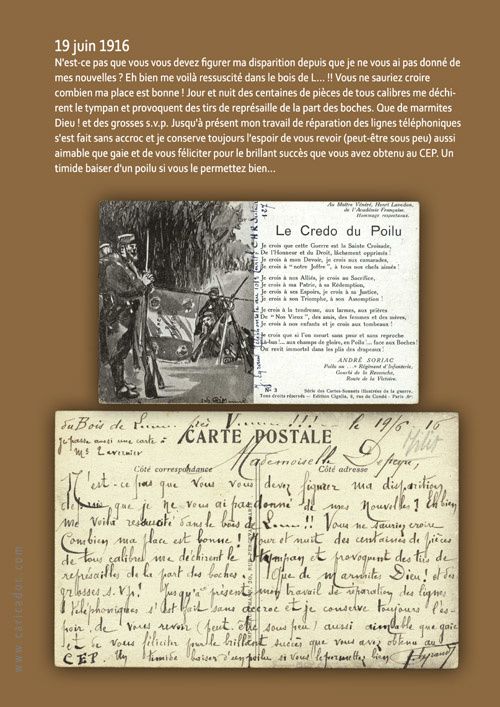 19 juin 1916
N'est-ce pas que vous vous devez figurer ma disparition depuis que je ne vous ai pas donné de
mes nouvelles ? Eh bien me voilà ressuscité dans le bois de L... !! Vous ne sauriez croire
combien ma place est bonne ! Jour et nuit des centaines de pièces de tous calibres me déchi-
rent le tympan et provoquent des tirs de représaille de la part des boches. Que de marmites
Dieu ! et des grosses s.v.p. Jusqu'à présent mon travail de réparation des lignes téléphoniques
s'est fait sans accroc et je conserve toujours l'espoir de vous revoir (peut-être sous peu) aussi
aimable que gaie et de vous féliciter pour le brillant succès que vous avez obtenu au CEP. Un
timide baiser d'un poilu si vous le permettez bien...
Au Maître Vénéré, Henri Lavedan,
de l'Académie Française,
Hommage respectueux.
Le Credo du Poilu
Je crois que cette Guerre est la Sainte Croisade,
De l'Honneur et du Droit, lâchement opprimés !
Je crois à mon Devoir, je crois aux camarades,
Je crois à " notre Joffre ", à tous nos chefs aimés !
Je crois à nos Alliés, je crois au Sacrifice,
Je crois à ma Patrie, à sa Rédemption,
Je crois à ses Espoirs, je crois à sa Justice,
Je crois à son Triomphe, à son Assomption !
Je crois à la tendresse, aux larmes, aux prières
De " Nos Vieux ", des amis, des femmes et des mères,
Je crois à nos enfants et je crois aux tombeaux !
Je crois que si l'on meurt sans peur et sans reproche
Là-bas !... aux champs de gloire, en Poilu !... face aux Boches !
On revit immortel dans les plis des drapeaux !
ANDRÉ SORIAC
Poilu au ...e Régiment d'Infanterie,
Route de la Victoire.
No 3
Série des Cartes-Sonnets Illustrées de la guerre.
Tous droits réservés — Edition Cigalia, 8, rue de Condé - Paris
du Bois de L... près V... !!! le 19/6/16
je passe aussi une carte à
Mr Lavernier
CARTE POSTALE
Côté correspondance
Côté adresse
Mademoiselle
N'est-ce pas que vous vous devez figurer ma disparition
depuis que je ne vous ai pas donné de mes nouvelles ? Eh bien
me voilà ressuscité dans le bois de L... !! Vous ne sauriez croire
Combien ma place est bonne ! Jour et nuit des centaines de pièces
de tous calibres me déchirent le tympan et provoquent des tirs de
représailles de la part des boches. Que de marmites Dieu ! et des
grosses s.v.p. Jusqu'à présent mon travail de réparation des lignes
téléphoniques s'est fait sans accroc et je conserve toujours l'es-
poir de vous revoir (peut être sous peu) aussi aimable que gaie
et de vous féliciter pour le brillant succès que vous avez obtenu au
CEP. Un timide baiser d'un poilu si vous le permettez bien
www.caricadoc.com